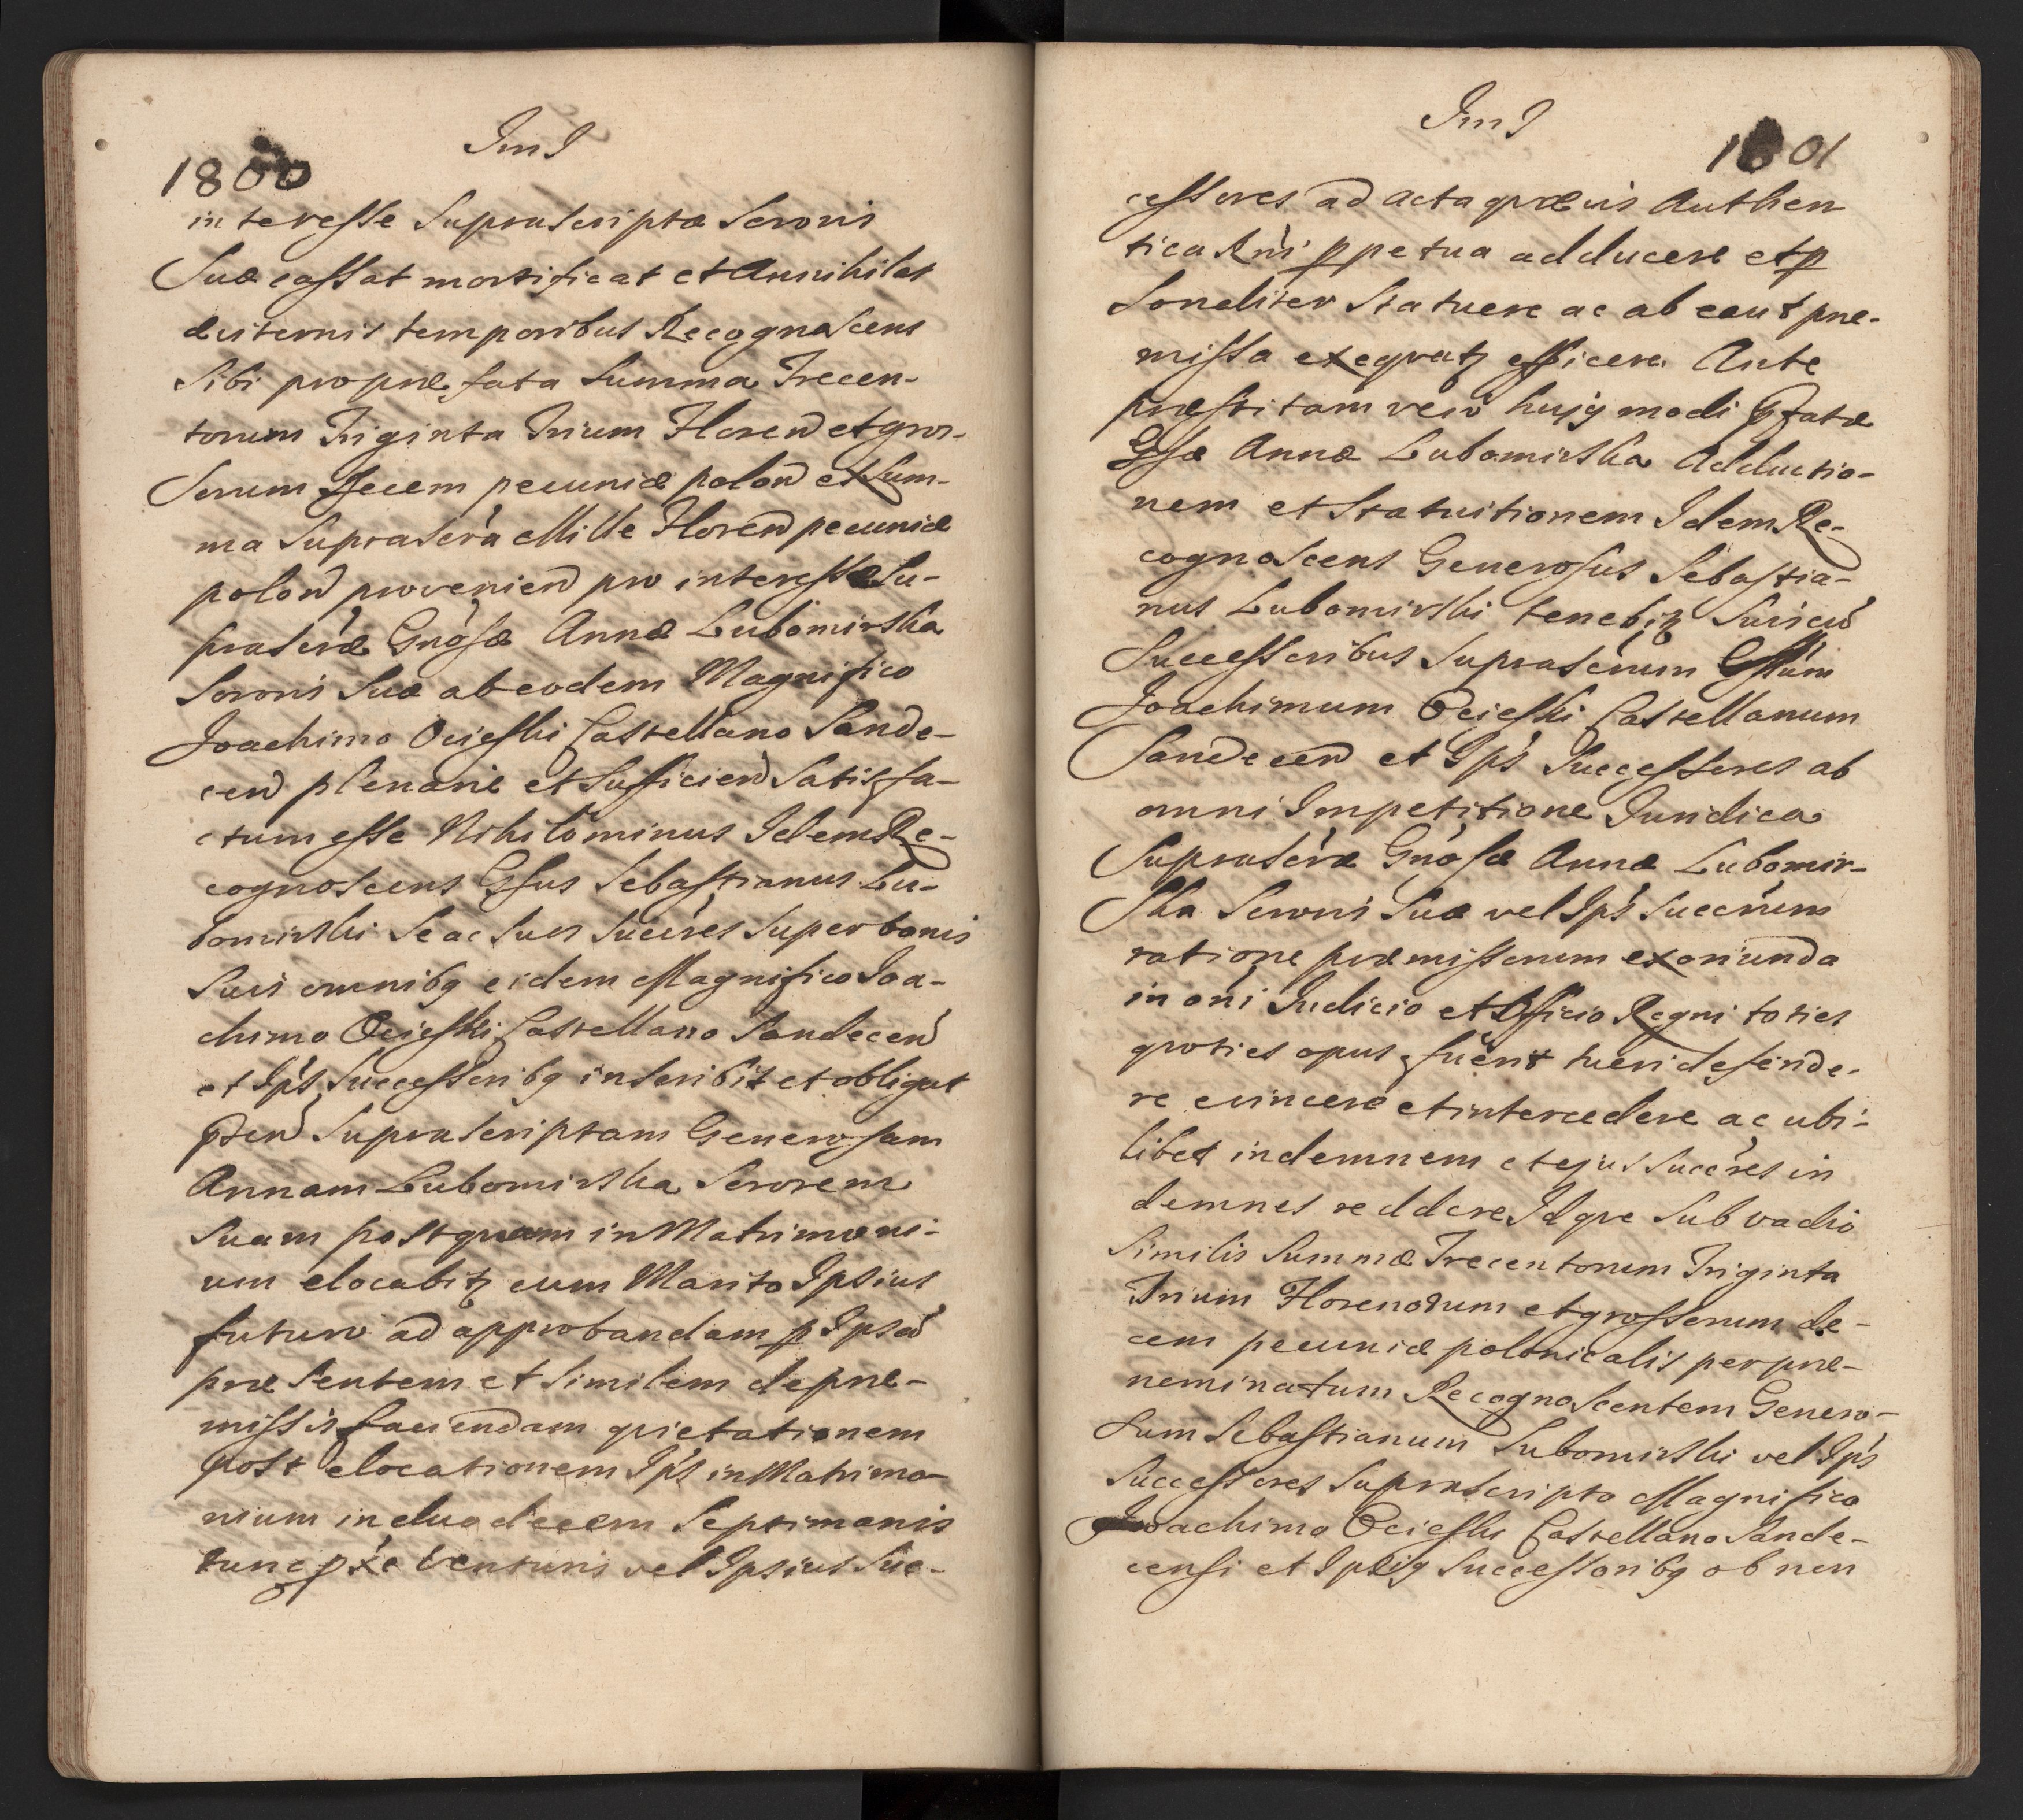 1800
Jm J
interesse Supra Scriptæ Sororis
Suæ cassat mortificat et Annihilat
æviternis temporibus Recognoscens
Sibi pro præfata Summa Trecen-
torum Triginta Trium Floren et gros-
sorum Decem pecuniæ polon et Sum-
ma Suprascra Mille Floren pecuniæ
polon provenien pro interesse Su-
prascræ Gnosæ Annæ Lubomirska
Sororis Suæ ab eodem Magnifico
Joachimo Ocieski Castellano Sande-
cen plenarie et Sufficien Satisfa-
ctum esse Nihilominus Idem Re-
cognoscens Gsus Sebastianus Lu-
bomirski Se ac Suos Succres Super bonis
Suis omnibq eidem Magnifico Joa-
chimo Ocieski Castellano Sandecen
et Ips Successoribq inscribit et obligat
Supra Scriptam Generosam
Annam Lubomirska Sororem
Suam postquam in Matrimoni-
um elocabitz cum Marito Ipsius
futuro ad approbandam p Ipsa
præsentem et Similem de præ-
missis faciendam quietationem
post elocationem Ips in Matrimo-
nium in duodecem Septimanis
tunc pxe venturis vel Ipsius Suc-
Jm J
1801
cessores ad acta quævis Authen
tica Rni ppetua adducere et p
sonaliter Statuere ac ab ea ut præ-
missa exequatz efficere Ante
præstitam vero hujq modi
Gsæ Annæ Lubomirska Adductio-
nem et Statuitionem Idem Re-
cognoscens Generosus Sebastia-
nus Lubomirski tenebitz Suis cu
Successoribus Suprascrum
Joachimum Ocieski Castellanum
Sandecen et Ips Successores ab
omni Impetitione Juridica
Suprascræ Gnosæ Annæ Lubomir-
ska Sororis Suæ vel Ips Succrum
ratione præmissorum exoriunda
in oni Judicio et Officio Regni toties
quoties opus fuerit tueri defende-
re evincere et intercedere ac ubi-
libet indemnem et ejus Succres in
demnes reddere Idque Sub vadio
Similis Summæ Trecentorum Triginta
Trium Florenorum et grossorum de-
cem pecuniæ polonicalis per præ-
nominatum Recognoscentem Genero-
sum Sebastianum Lubomirski vel Ips
Successores Suprascripto Magnifico
Joachimo Ocieski Castellano Sande-
censi et Ipsiq Successoribq ob non